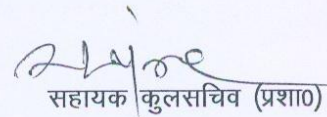 सहायक कुलसचिव (प्रशा०)